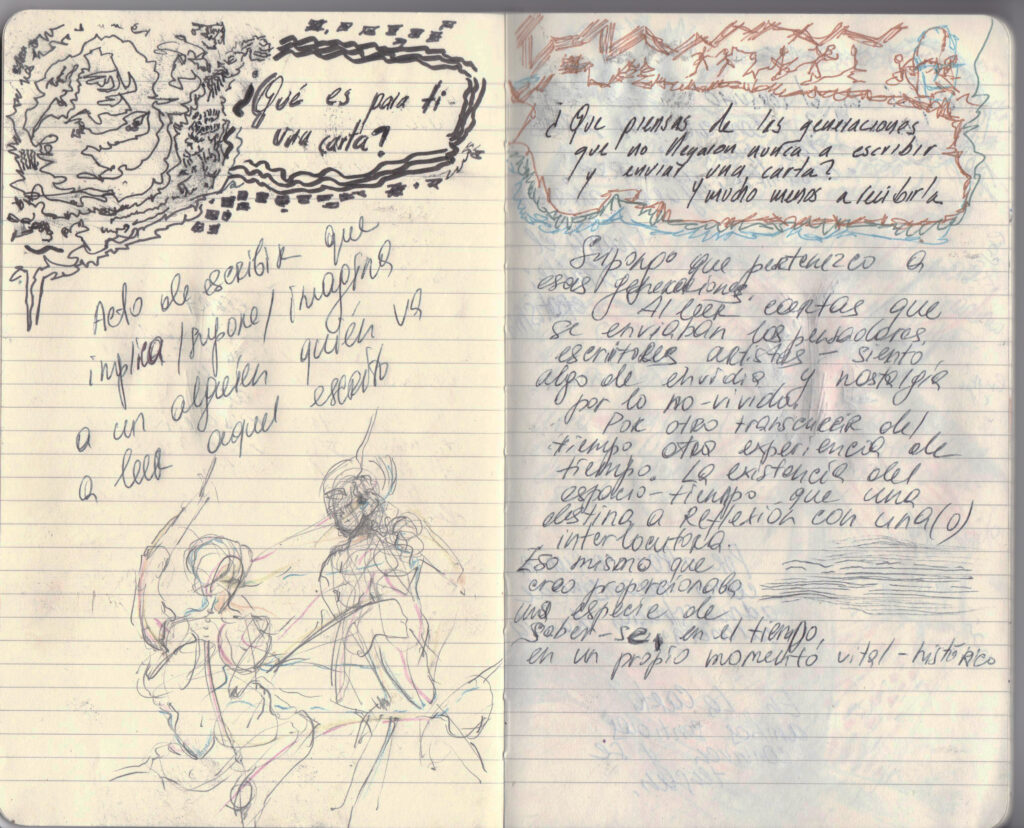 ¿Qué es para ti
una carta?
Acto de escribir que
implica/supone/imagina
a un alguien quién va
a leer aquel escrito
¿Que piensas de las generaciones
que no llegaron nunca a escribir
y enviar una carta?
Y mucho menos a recibirla
Supongo que pertenezco a
esas generaciones.
Al leer cartas que
se enviaban los pensadores,
escritores artistas - siento
algo de envidia y nostalgia
por lo no-vivido.
Por otro transcurrir del
tiempo otra experiencia de
tiempo. La existencia del
espacio-tiempo que una
destina a reflexión con una(o)
interlocutora.
Eso mismo que
creo proporcionaba
una especie de
saber-se, en el tiempo,
en un propio momento vital-histórico